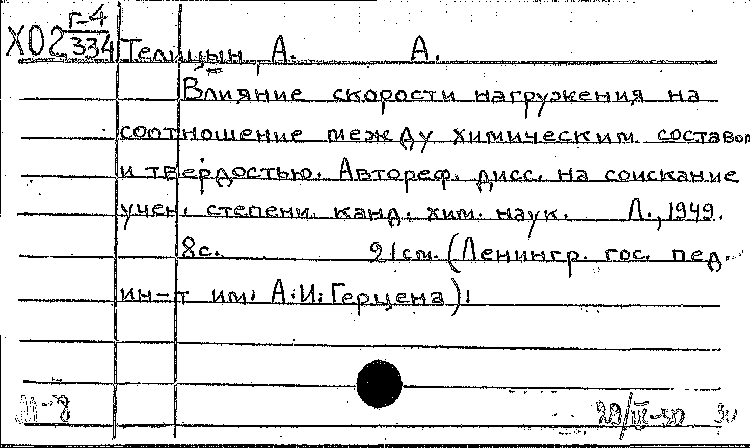 Г-4
Х02 334 Телицын, А. А.
Влияние скорости нагружения на
соотношение между химическим составом
и твердостью. Автореф. дисс. на соискание
учен. степени канд. хим. наук. Л., 1949.
8с. 21см. (Ленингр. гос. пед.
ин-т им. А.И. Герцена).